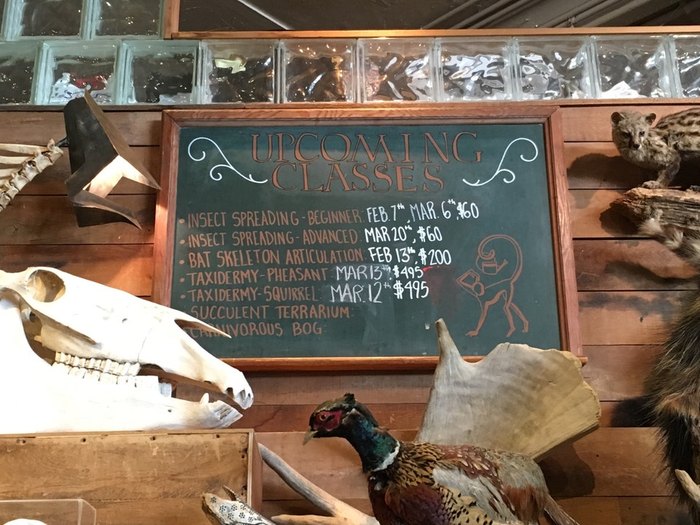 UPCOMING
CLASSES
• INSECT SPREADING - BEGINNER: FEB. 7th, MAR. 6th, $60
• INSECT SPREADING - ADVANCED: MAR 20th, $60
• BAT SKELETON ARTICULATION: FEB 13th, $200
• TAXIDERMY - PHEASANT: MAR 13th $495
• TAXIDERMY - SQUIRREL: MAR. 12th $495
SUCCULENT TERRARIUM:
CARNIVOROUS BOG: